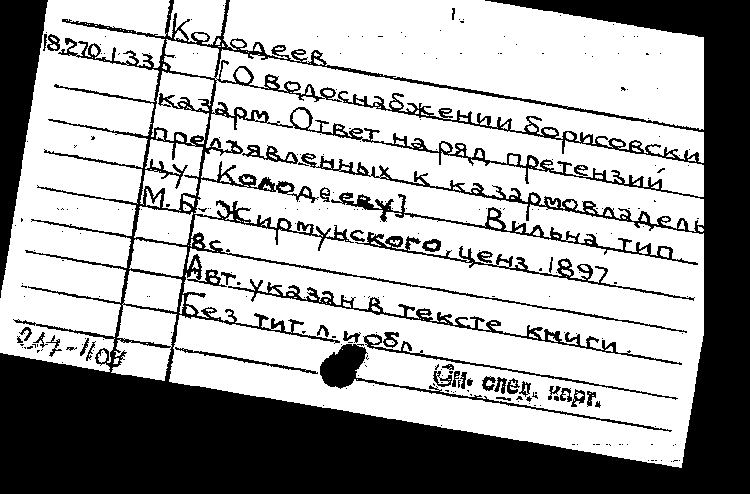 1.
Колодеев
18.270.1.335 [О водоснабжении Борисовски
казарм. Ответ на ряд претензий
предъявленных к казармовладель
цу Колодееву]. Вильна, тип.
М.Б. Жирмунского, ценз. 1897.
8с.
Авт. указан в тексте книги.
Без тит. л. и обл.
См. след. карт.